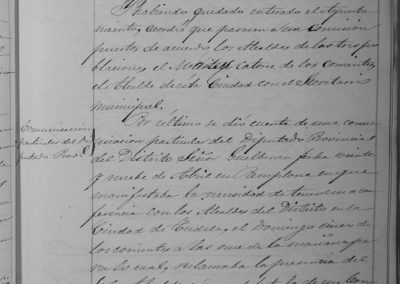 Y habiendo quedado enterado el Ayunta
miento, acordó que pasasen a una Comisión
puestos de acuerdo los Alcaldes de las tres po
blaciones el Martes Catorce de los corrientes,
el Alcalde de ésta Ciudad con el Secretario
municipal.
Comunicación
particular del Di
putado Prov.l
Por último se dió cuenta de una comu
nicación particular del Diputado Provincial
del Distrito Señor Guelbenzu fecha veinte
y nueve de Abril en Pamplona en que
manifestaba la necesidad de tener una con
ferencia con los Alcaldes del Distrito en la
Ciudad de Tudela, el Domingo cinco de
los corrientes a las once de la mañana pa
ra lo cual, reclamaba la presencia del